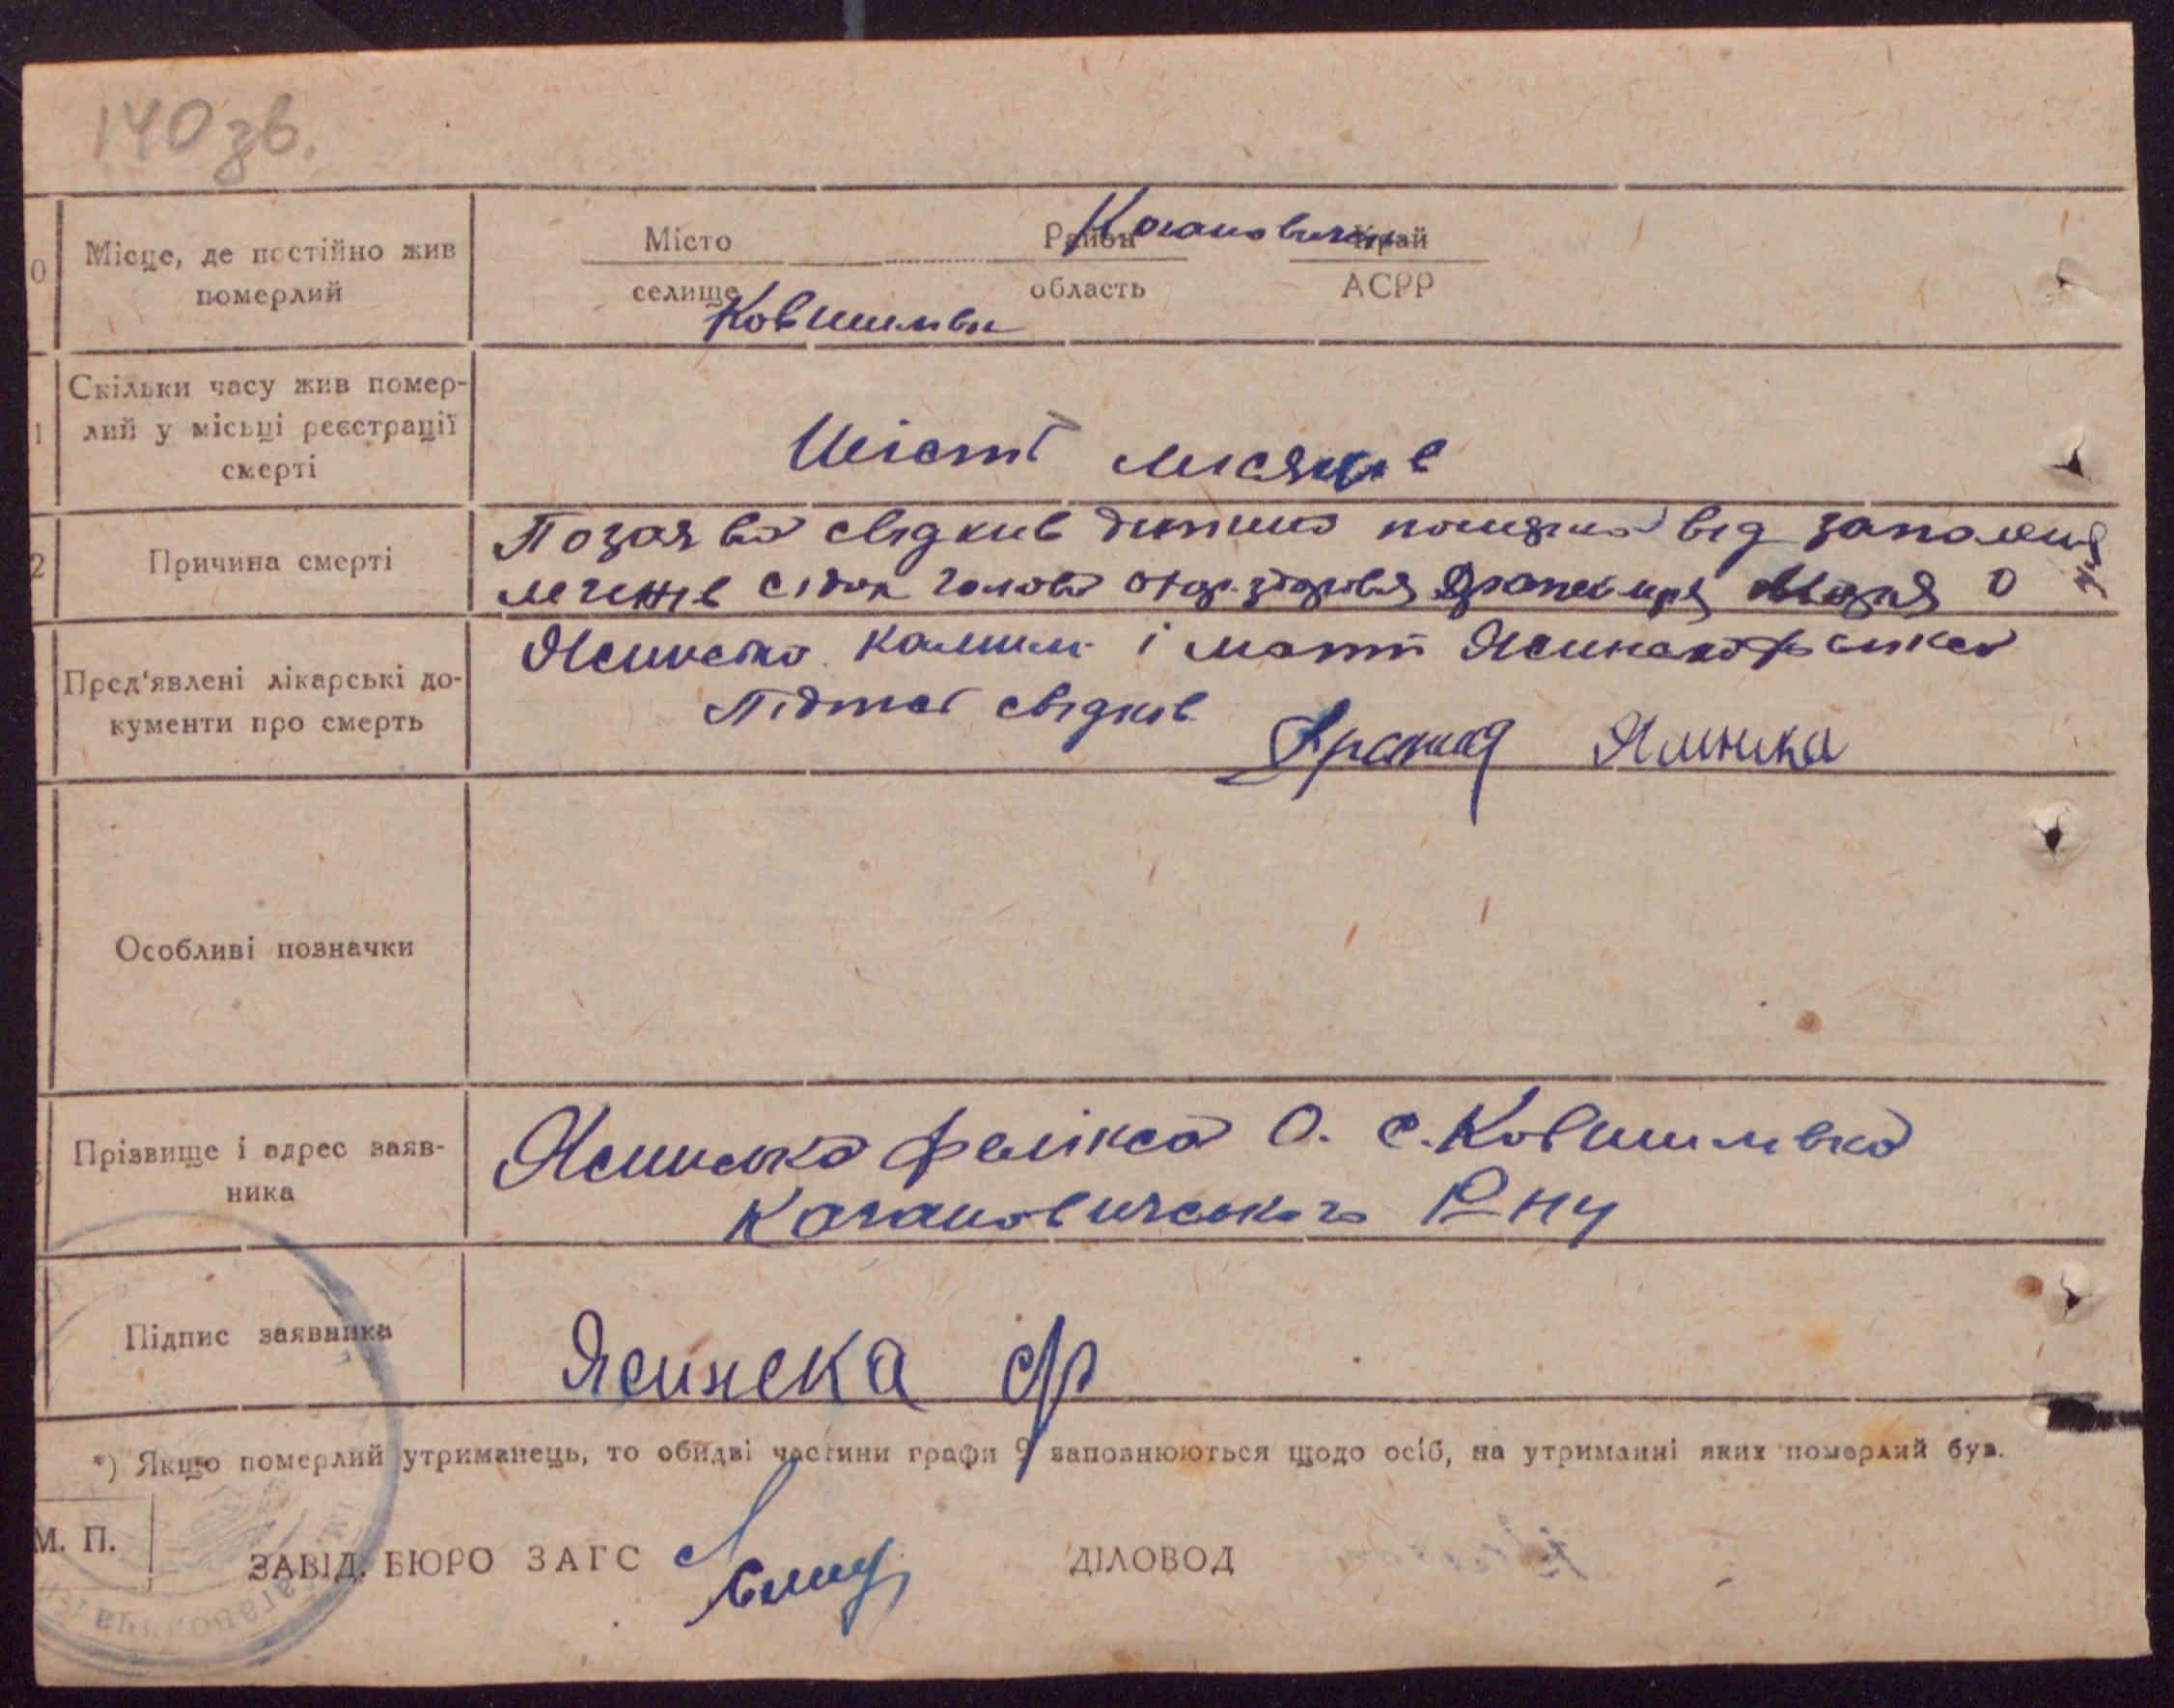 140 зв.
0 Місце, де постійно жив померлий
Місто Район Край
Кагановичи
селище область АСРР
Ковшилівка
1 Скільки часу жив померлий у місьці реєстрації смерті
Шість місяців
2 Причина смерті
По заяви свідків дитина померла від запалення
легенів
Пред'явлені лікарські документи про смерть
Ясинська і мати Ясинська Фелікса
Підпис свідків
Особливі позначки
Прізвище і адрес заявника
Ясинська Фелікса О. с. Ковшилівка
Кагановичського Р-ну
Підпис заявника
Ясинска Ф
*) Якщо померлий утриманець, то обидві частини графи 9 заповнюються щодо осіб, на утриманні яких померлий був.
М. П.
ЗАВІД. БЮРО ЗАГС ДІЛОВОД